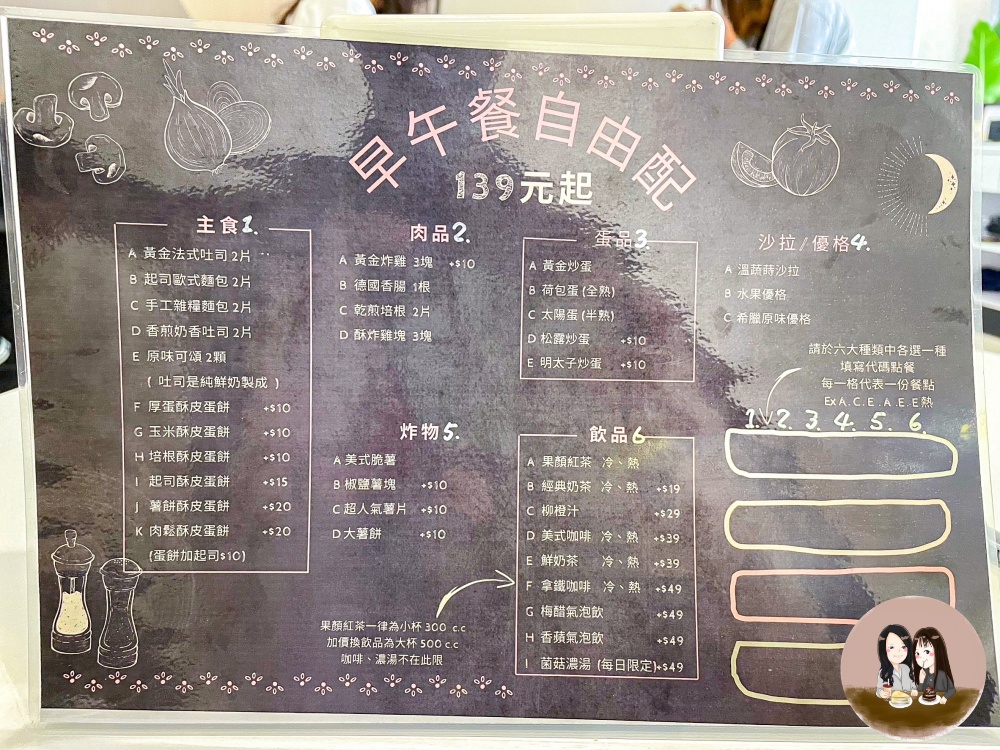 早午餐自由配
139元起
主食1.
A 黃金法式吐司 2片
B 起司歐式麵包 2片
C 手工雜糧麵包 2片
D 香煎奶香吐司 2片
E 原味可頌 2顆
( 吐司是純鮮奶製成 )
F 厚蛋酥皮蛋餅 +$10
G 玉米酥皮蛋餅 +$10
H 培根酥皮蛋餅 +$10
I 起司酥皮蛋餅 +$15
J 薯餅酥皮蛋餅 +$20
K 肉鬆酥皮蛋餅 +$20
(蛋餅加起司$10)
肉品2.
A 黃金炸雞 3塊 +$10
B 德國香腸 1根
C 乾煎培根 2片
D 酥炸雞塊 3塊
蛋品3.
A 黃金炒蛋
B 荷包蛋 (全熟)
C 太陽蛋 (半熟)
D 松露炒蛋 +$10
E 明太子炒蛋 +$10
沙拉/優格4.
A 溫蔬蒔沙拉
B 水果優格
C 希臘原味優格
請於六大種類中各選一種
填寫代碼點餐
每一格代表一份餐點
Ex A. C. E . A. E. E 熱
1. 2. 3. 4. 5. 6.
炸物5.
A 美式脆薯
B 椒鹽薯塊 +$10
C 超人氣薯片 +$10
D 大薯餅 +$10
飲品6.
A 果顏紅茶 冷、熱
B 經典奶茶 冷、熱 +$19
C 柳橙汁 +$29
D 美式咖啡 冷、熱 +$39
E 鮮奶茶 冷、熱 +$39
F 拿鐵咖啡 冷、熱 +$49
G 梅醋氣泡飲 +$49
H 香蘋氣泡飲 +$49
I 菌菇濃湯 (每日限定)+$49
果顏紅茶一律為小杯 300 c.c
加價換飲品為大杯 500 c.c
咖啡、濃湯不在此限